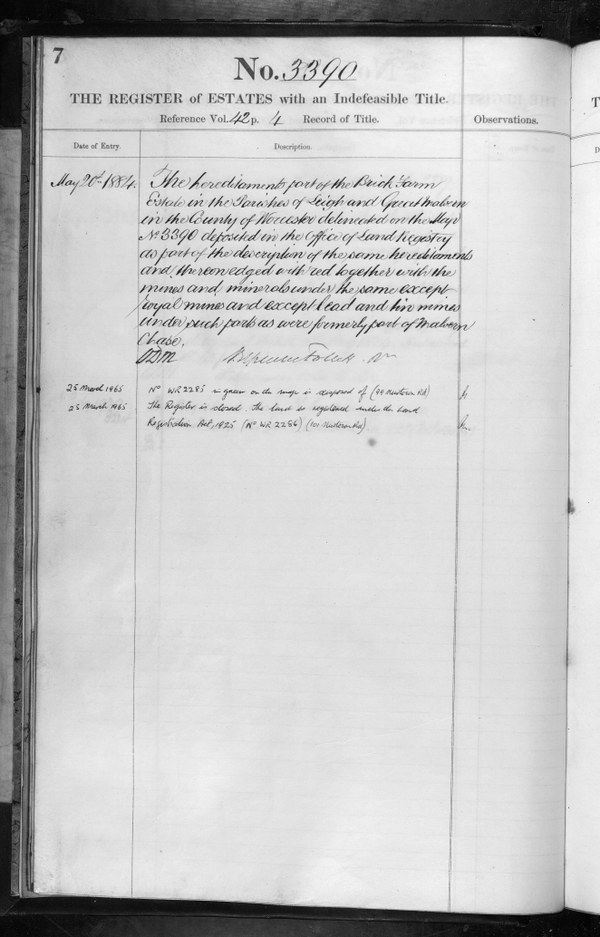 7
No. 3390
THE REGISTER of ESTATES with an Indefeasible Title.
Reference Vol. 42 p. 4 Record of Title.
Observations.
Date of Entry.
Description.
May 20th 1884. The hereditaments part of the Brick Farm
Estate in the Parishes of Leigh and Great Malvern
in the County of Worcester delineated on the Map
No 3390 deposited in the Office of Land Registry
as part of the description of the same hereditaments
and thereon edged with red together with the
mines and minerals under the same except
royal mines and except lead and tin mines
under such parts as were formerly part of Malvern
Chase.
25 March 1965 No WR 2285 in green on the map is disposed of (99 Newtown Rd)
25 March 1965 The Register is closed The land is registered under the Land
Registration Act, 1925 (No WR 2286) (101 Newtown Rd)
T
D